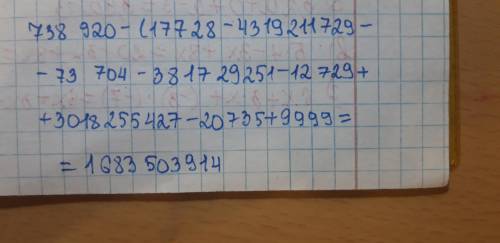 738 920-(17728-4319211729-
-73 704-381729251-12729+
+3018255427-20735+9999=
=1683503914